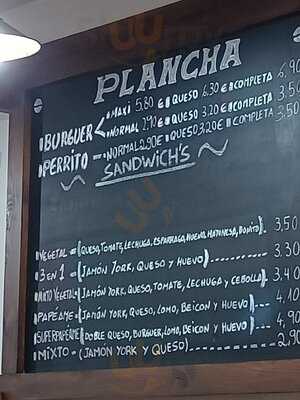 PLANCHA
BURGUER < MAXI 5,80 € QUESO 6.30 € COMPLETA 6,90
NORMAL 2.90 € QUESO 3.20 € COMPLETA 3.50
PERRITO - NORMAL 2.90€ QUESO 3.20€ COMPLETA 3.50
~ SANDWICH'S ~
VEGETAL = (QUESO, TOMATE, LECHUGA, ESPARRAGO, HUEVO, MAYONESA, BONITO). 3,50
3 EN 1 = (JAMÓN YORK, QUESO Y HUEVO) 3.30
MIXTO VEGETAL = (JAMÓN YORK, QUESO, TOMATE, LECHUGA Y CEBOLLA) 3.40
PAPEAME = (JAMÓN YORK, QUESO, LOMO, BEICON Y HUEVO) 4,10
SUPERPAPÉAME = (DOBLE QUESO, BURGUER, LOMO, BEICON Y HUEVO) 4,90
MIXTO - (JAMON YORK Y QUESO) 2.90